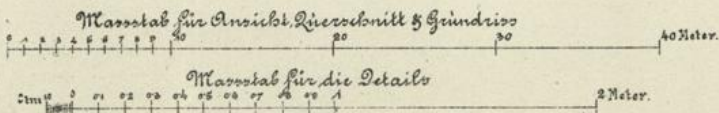 Massstab für Ansicht, Querschnitt & Grundriss
0 1 2 3 4 5 6 7 8 9 10 20 30 40 Meter.
Massstab für die Details
10 0 01 02 03 04 05 06 07 08 09 1 2 Meter.